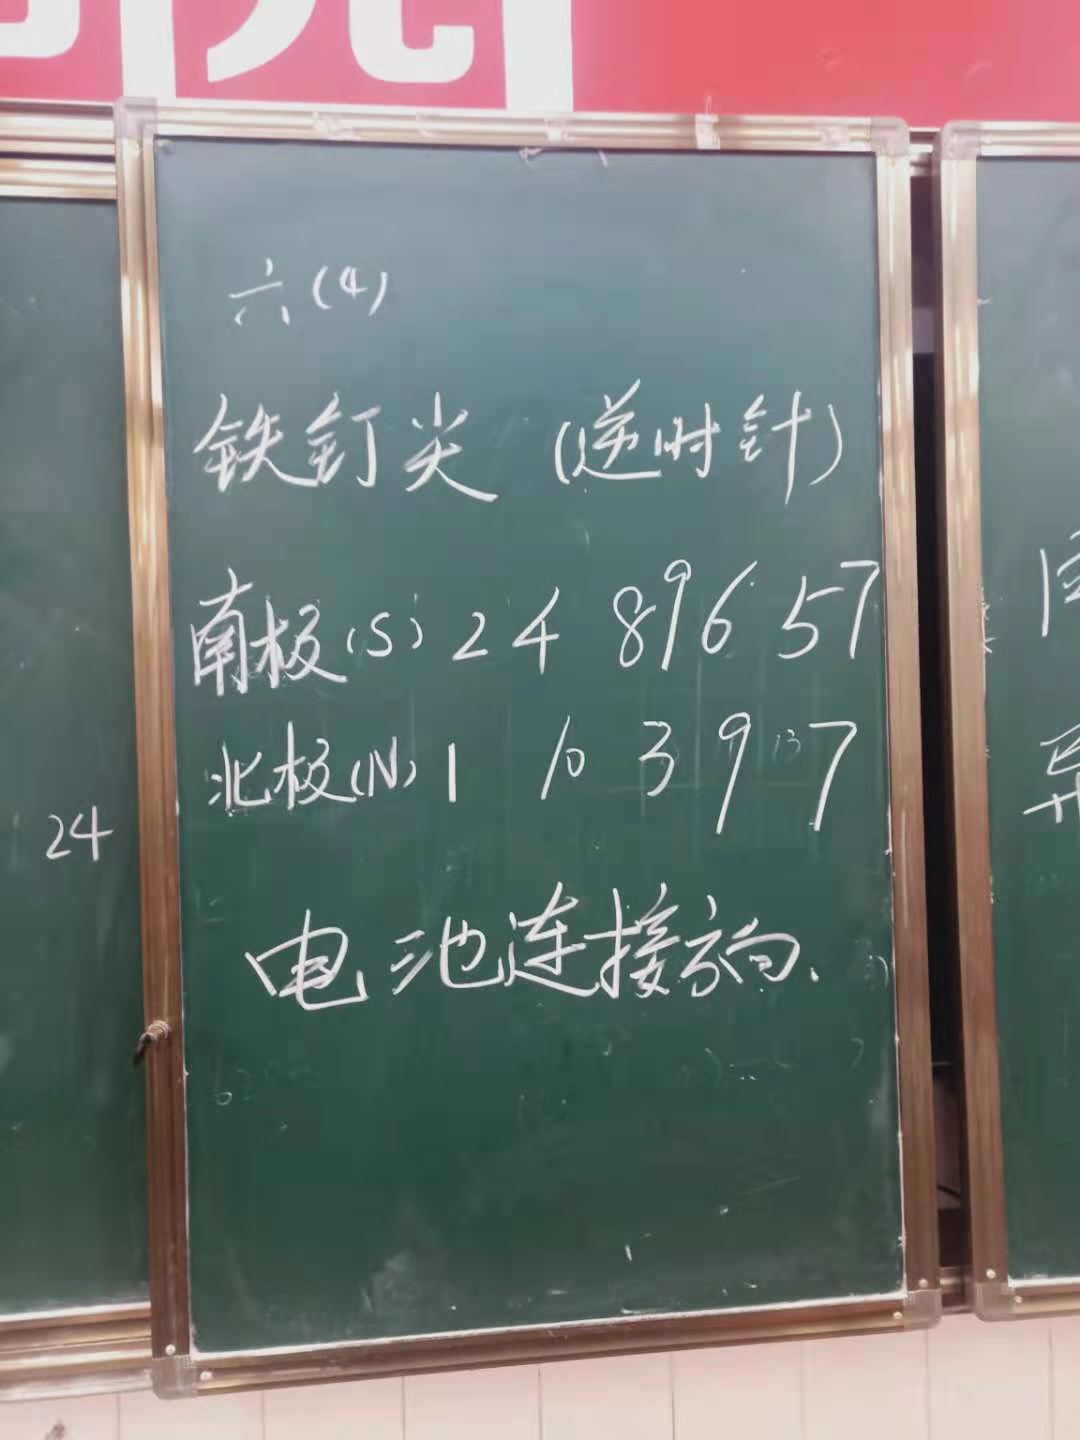 六(4)
铁钉尖 (逆时针)
南极(S) 2 4 8 9 6 5 7
北极(N) 1 10 3 9 7
电池连接方向、
24